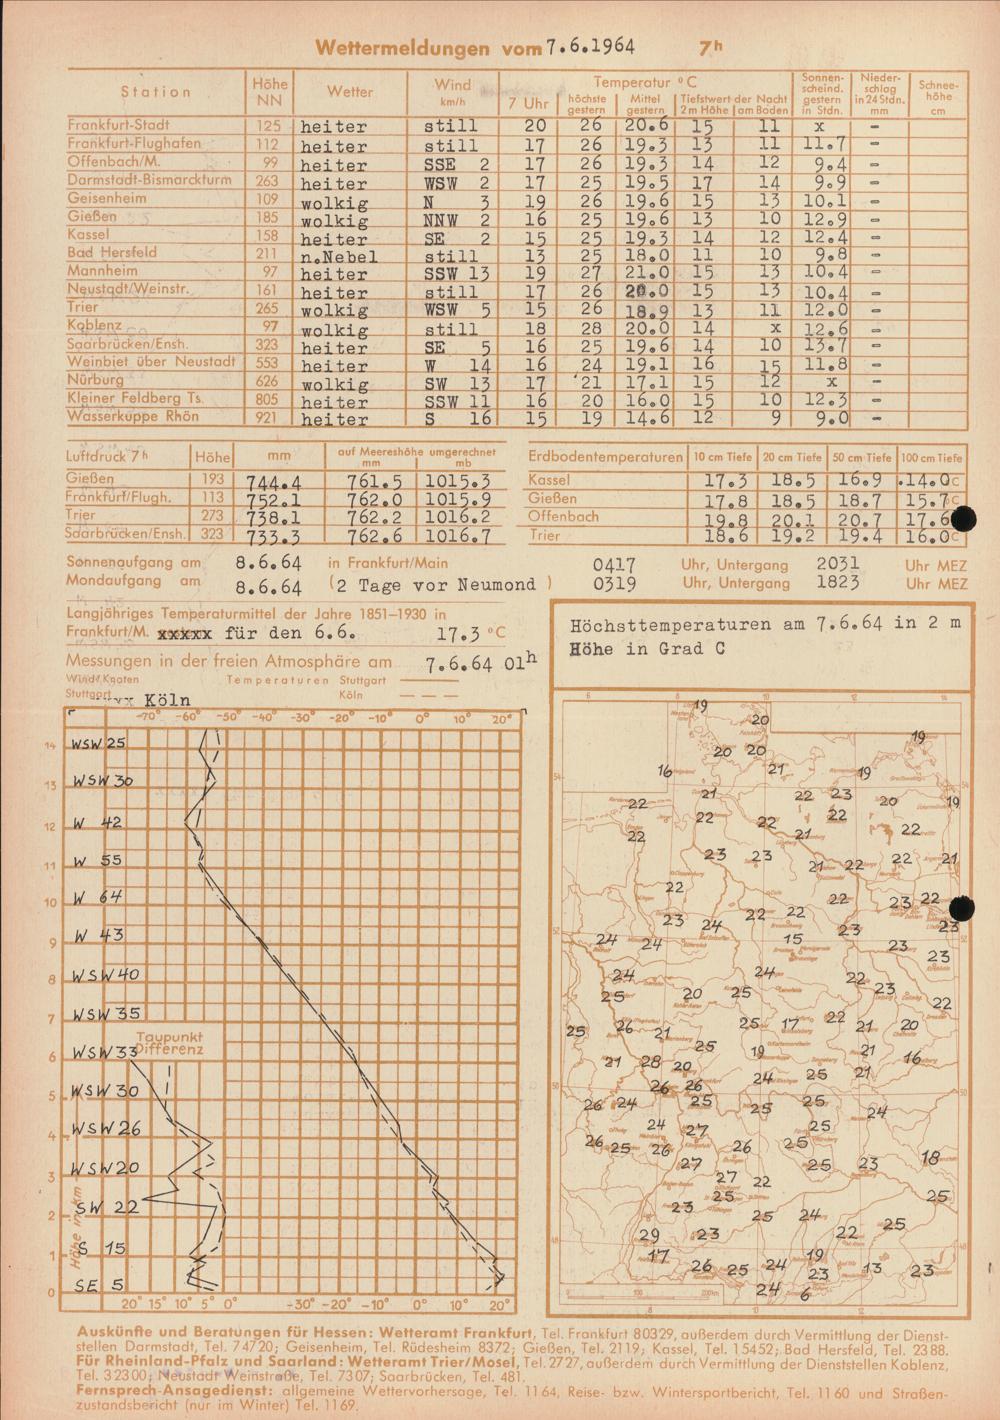 Wettermeldungen vom 7.6.1964 7h
Station Höhe NN Wetter Wind km/h Temperatur °C Sonnenscheind. gestern in Stdn. Niederschlag in 24 Stdn. mm Schneehöhe cm
7 Uhr höchste gestern Mittel gestern Tiefstwert der Nacht 2 m Höhe am Boden
Frankfurt-Stadt 125 heiter still 20 26 20.6 15 11 x -
Frankfurt-Flughafen 112 heiter still 17 26 19.3 13 11 11.7 -
Offenbach/M. 99 heiter SSE 2 17 26 19.3 14 12 9.4 -
Darmstadt-Bismarckturm 263 heiter WSW 2 17 25 19.5 17 14 9.9 -
Geisenheim 109 wolkig N 3 19 26 19.6 15 13 10.1 -
Gießen 185 wolkig NNW 2 16 25 19.6 13 10 12.9 -
Kassel 158 heiter SE 2 15 25 19.3 14 12 12.4 -
Bad Hersfeld 211 n.Nebel still 13 25 18.0 11 10 9.8 -
Mannheim 97 heiter SSW 13 19 27 21.0 15 13 10.4 -
Neustadt/Weinstr. 161 heiter still 17 26 20.0 15 13 10.4 -
Trier 265 wolkig WSW 5 15 26 18.9 13 11 12.0 -
Koblenz 97 wolkig still 18 28 20.0 14 x 12.6 -
Saarbrücken/Ensh. 323 heiter SE 5 16 25 19.6 14 10 13.7 -
Weinbiet über Neustadt 553 heiter W 14 16 24 19.1 16 15 11.8 -
Nürburg 626 wolkig SW 13 17 21 17.1 15 12 x -
Kleiner Feldberg Ts. 805 heiter SSW 11 16 20 16.0 15 10 12.3 -
Wasserkuppe Rhön 921 heiter S 16 15 19 14.6 12 9 9.0 -
Luftdruck 7h Höhe mm auf Meereshöhe umgerechnet mm mb
Gießen 193 744.4 761.5 1015.3
Frankfurt/Flugh. 113 752.1 762.0 1015.9
Trier 273 738.1 762.2 1016.2
Saarbrücken/Ensh. 323 733.3 762.6 1016.7
Erdbodentemperaturen 10 cm Tiefe 20 cm Tiefe 50 cm Tiefe 100 cm Tiefe
Kassel 17.3 18.5 16.9 14.0°C
Gießen 17.8 18.5 18.7 15.7°C
Offenbach 19.8 20.1 20.7 17.6
Trier 18.6 19.2 19.4 16.0°C
Sonnenaufgang am 8.6.64 in Frankfurt/Main 0417 Uhr, Untergang 2031 Uhr MEZ
Mondaufgang am 8.6.64 (2 Tage vor Neumond ) 0319 Uhr, Untergang 1823 Uhr MEZ
Langjähriges Temperaturmittel der Jahre 1851–1930 in
Frankfurt/M. xxxxx für den 6.6. 17.3 °C
Messungen in der freien Atmosphäre am 7.6.64 01h
Wind/Knoten Temperaturen Stuttgart
Stuttgart Köln Köln
-70° -60° -50° -40° -30° -20° -10° 0° 10° 20°
14 WSW 25
13 WSW 30
12 W 42
11 W 55
10 W 64
9 W 43
8 WSW 40
7 WSW 35
Taupunkt
Differenz
6 WSW 33
5 WSW 30
4 WSW 26
3 WSW 20
2 SW 22
1 S 15
0 SE 5
Höhe in km
20° 15° 10° 5° 0° -30° -20° -10° 0° 10° 20°
Höchsttemperaturen am 7.6.64 in 2 m
Höhe in Grad C
6 8 10 12 14
19 20 19
20 20
16 21 19
22 21 22 23 20 19
22 22 22 21 22 22
23 23 21 22 22 21
22 22 23 22
23 24 22 22 23 23
24 24 15 23 23
24 24 22
25 20 25 23 22
25 26 21 25 17 22 21 20
25 19 21 16
21 28 20 24 25 21
26 26
26 24 25 25 25 24
24 27 25
26 25 26 26 25
27 25 23 18
27 22
25 25
23 25 24
29 23 22 25
17 26 25 24 19 23 13 23
24 6
Auskünfte und Beratungen für Hessen: Wetteramt Frankfurt, Tel. Frankfurt 80329, außerdem durch Vermittlung der Dienst-
stellen Darmstadt, Tel. 74720; Geisenheim, Tel. Rüdesheim 8372; Gießen, Tel. 2119; Kassel, Tel. 15452; Bad Hersfeld, Tel. 2388.
Für Rheinland-Pfalz und Saarland: Wetteramt Trier/Mosel, Tel. 2727, außerdem durch Vermittlung der Dienststellen Koblenz,
Tel. 32300; Neustadt Weinstraße, Tel. 7307; Saarbrücken, Tel. 481.
Fernsprech-Ansagedienst: allgemeine Wettervorhersage, Tel. 1164, Reise- bzw. Wintersportbericht, Tel. 1160 und Straßen-
zustandsbericht (nur im Winter) Tel. 1169.